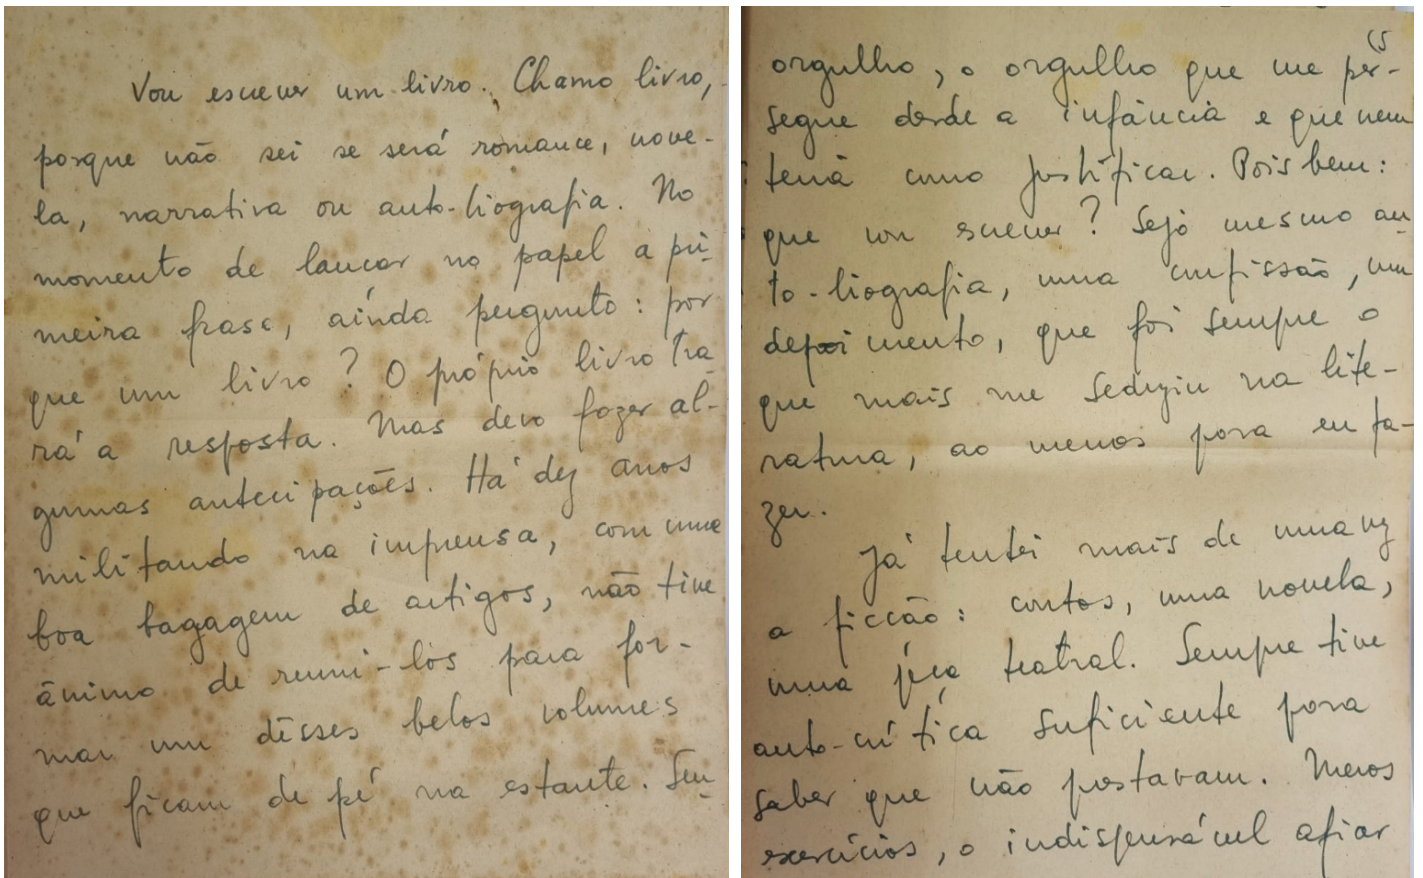 Vou escrever um livro. Chamo livro,
porque não sei se será romance, nove-
la, narrativa ou auto-biografia. No
momento de lançar no papel a pri-
meira frase, ainda pergunto: por
que um livro? O próprio livro tra-
rá a resposta. Mas devo fazer al-
gumas antecipações. Há dez anos
militando na imprensa, com uma
boa bagagem de artigos, não tive
ânimo de reuni-los para for-
mar um dêsses belos volumes
que ficam de pé na estante. Sem-
15
orgulho, o orgulho que me per-
segue desde a infância e que nem
teria como justificar. Pois bem:
que vou escrever? Seja mesmo au-
to-biografia, uma confissão, um
depoimento, que foi sempre o
que mais me seduziu na lite-
ratura, ao menos para eu fa-
zer.
Já tentei mais de uma vez
a ficção: contos, uma novela,
uma peça teatral. Sempre tive
auto-crítica suficiente para
saber que não prestavam. Meros
exercícios, o indispensável afiar